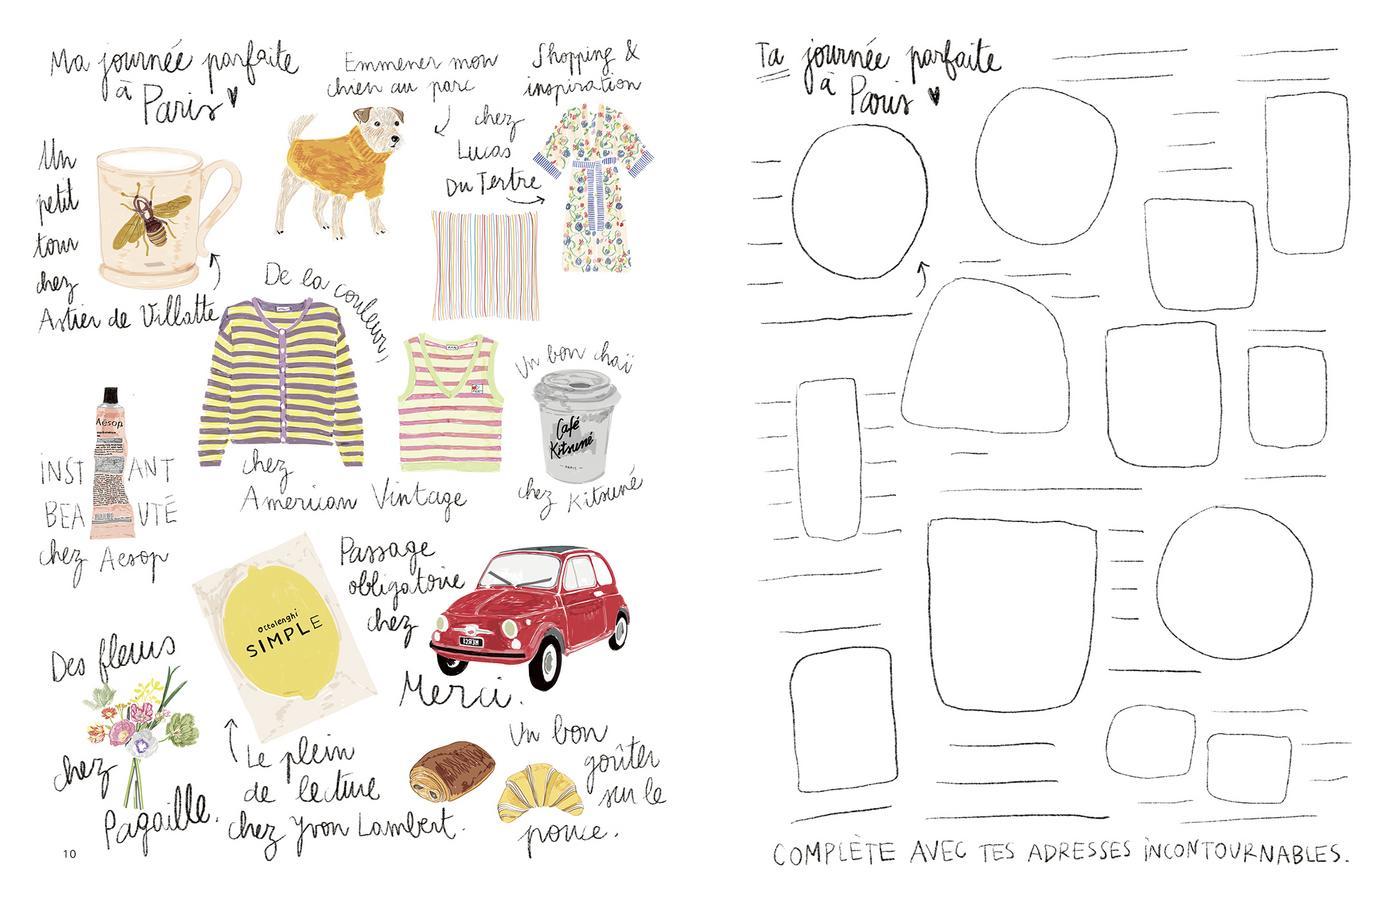 Ma journée parfaite
à Paris
Emmener mon
chien au parc
Shopping &
inspiration
chez
Lucas
Du Tertre
Un
petit
tour
chez
Astier de Villatte
De la couleur,
chez
American Vintage
Un bon chaï
Café
Kitsuné
PARIS
chez Kitsuné
Aēsop
INSTANT
BEAUTÉ
chez Aesop
Passage
obligatoire
chez
Merci.
ottolenghi
SIMPLE
Des fleurs
chez
Pagaille.
Le plein
de lecture
chez Yvon Lambert.
Un bon
goûter
sur le
pouce.
10
Ta journée parfaite
à Paris
COMPLÈTE AVEC TES ADRESSES INCONTOURNABLES.